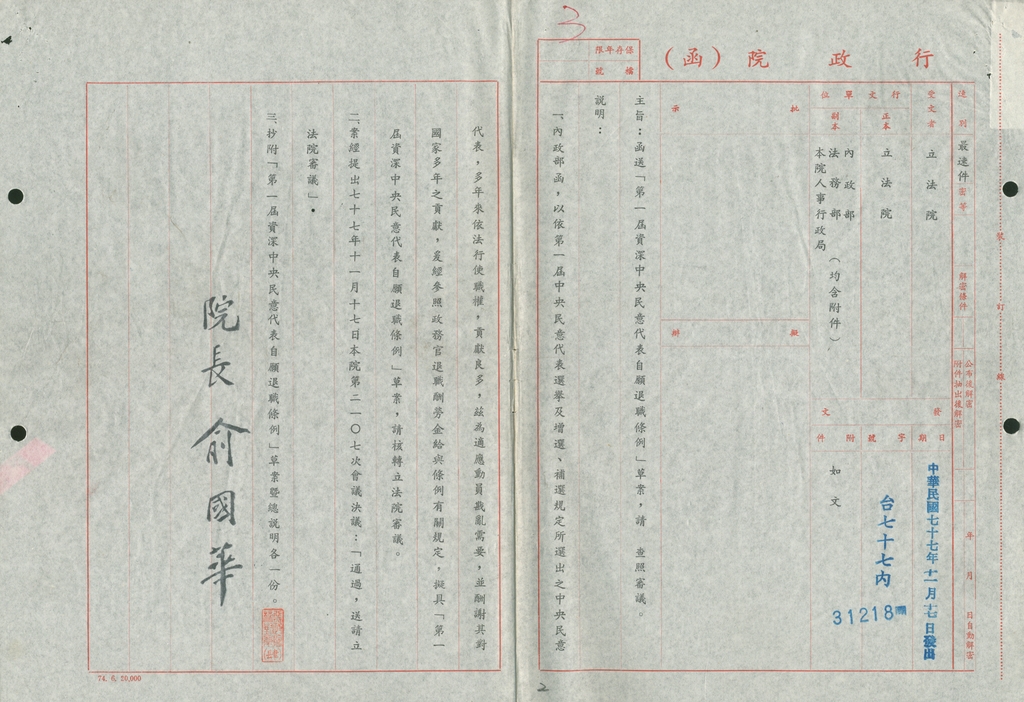 3
行政院（函）
保存年限
檔號
速別
最速件
密等
解密條件
公布後解密
附件抽出後解密
年月日自動解密
受文者
立法院
行文單位
正本
立法院
副本
內政部
法務部
本院人事行政局（均含附件）
發文
日期
中華民國七十七年十一月十七日發出
字號
台七十七內
31218
附件
如文
批示
擬辦
裝訂線
主旨：函送「第一屆資深中央民意代表自願退職條例」草案，請　查照審議。
說明：
一、內政部函，以依第一屆中央民意代表選舉及增選、補選規定所選出之中央民意
代表，多年來依法行使職權，貢獻良多，茲為適應動員戡亂需要，並酬謝其對
國家多年之貢獻，爰經參照政務官退職酬勞金給與條例有關規定，擬具「第一
屆資深中央民意代表自願退職條例」草案，請核轉立法院審議。
二、案經提出七十七年十一月十七日本院第二一〇七次會議決議：「通過，送請立
法院審議」。
三、抄附「第一屆資深中央民意代表自願退職條例」草案暨總說明各一份。
院長俞國華
74. 6. 20,000
2